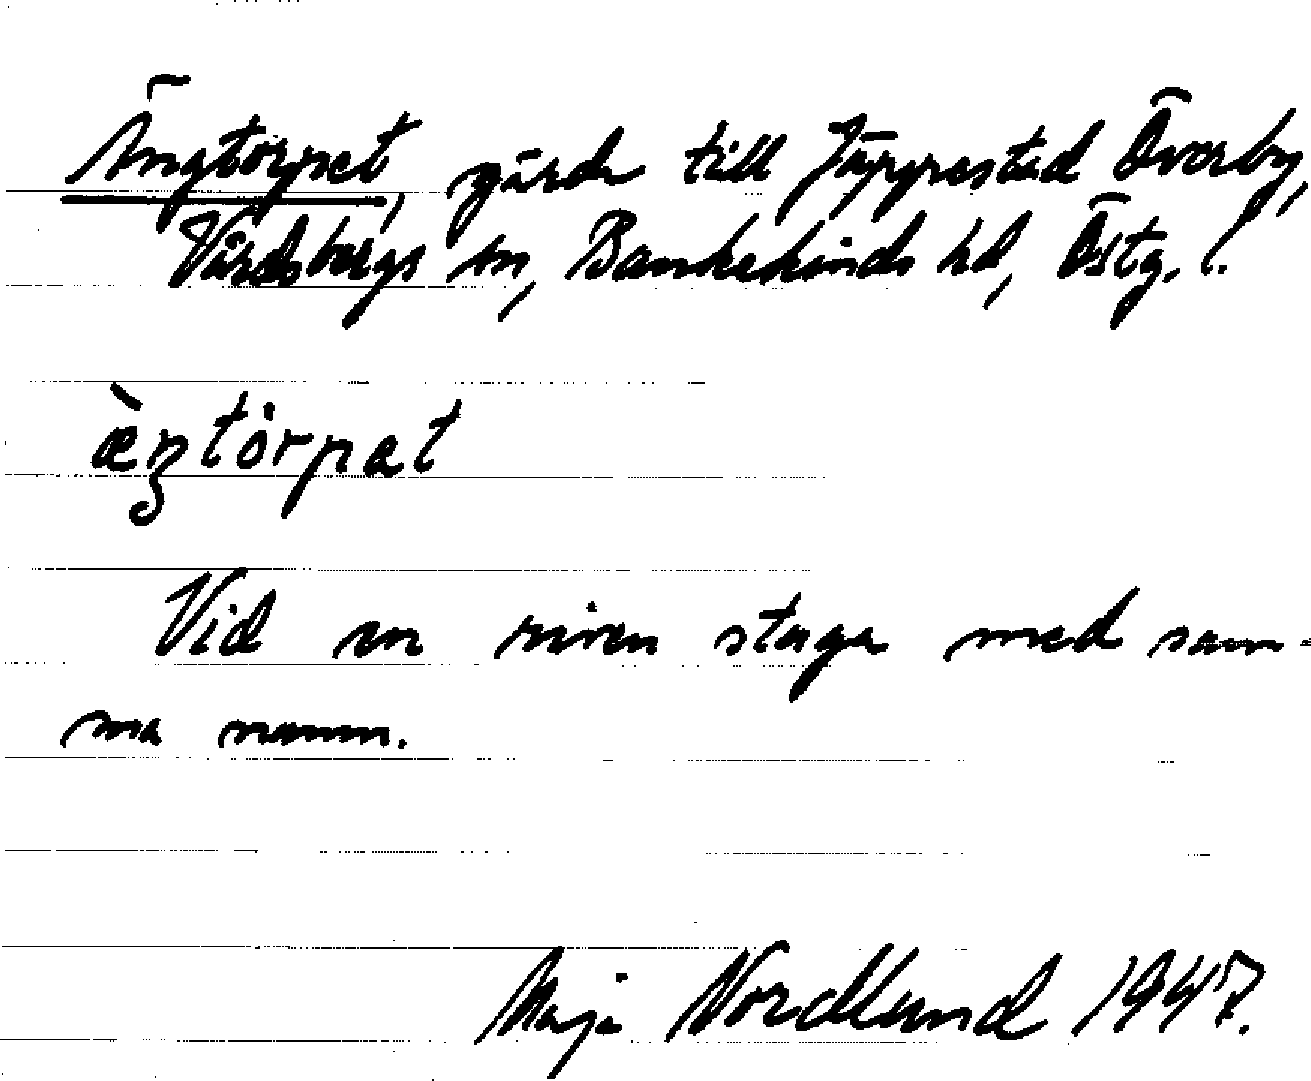 Ängtorpet, gärde till Jäppestad Överby,
Vårdsbergs sn, Bankekinds hd, Östg. l.
æ̀ŋtȯrpat
Vid en riven stuga med sam-
ma namn.
Maja Nordlund 1947.